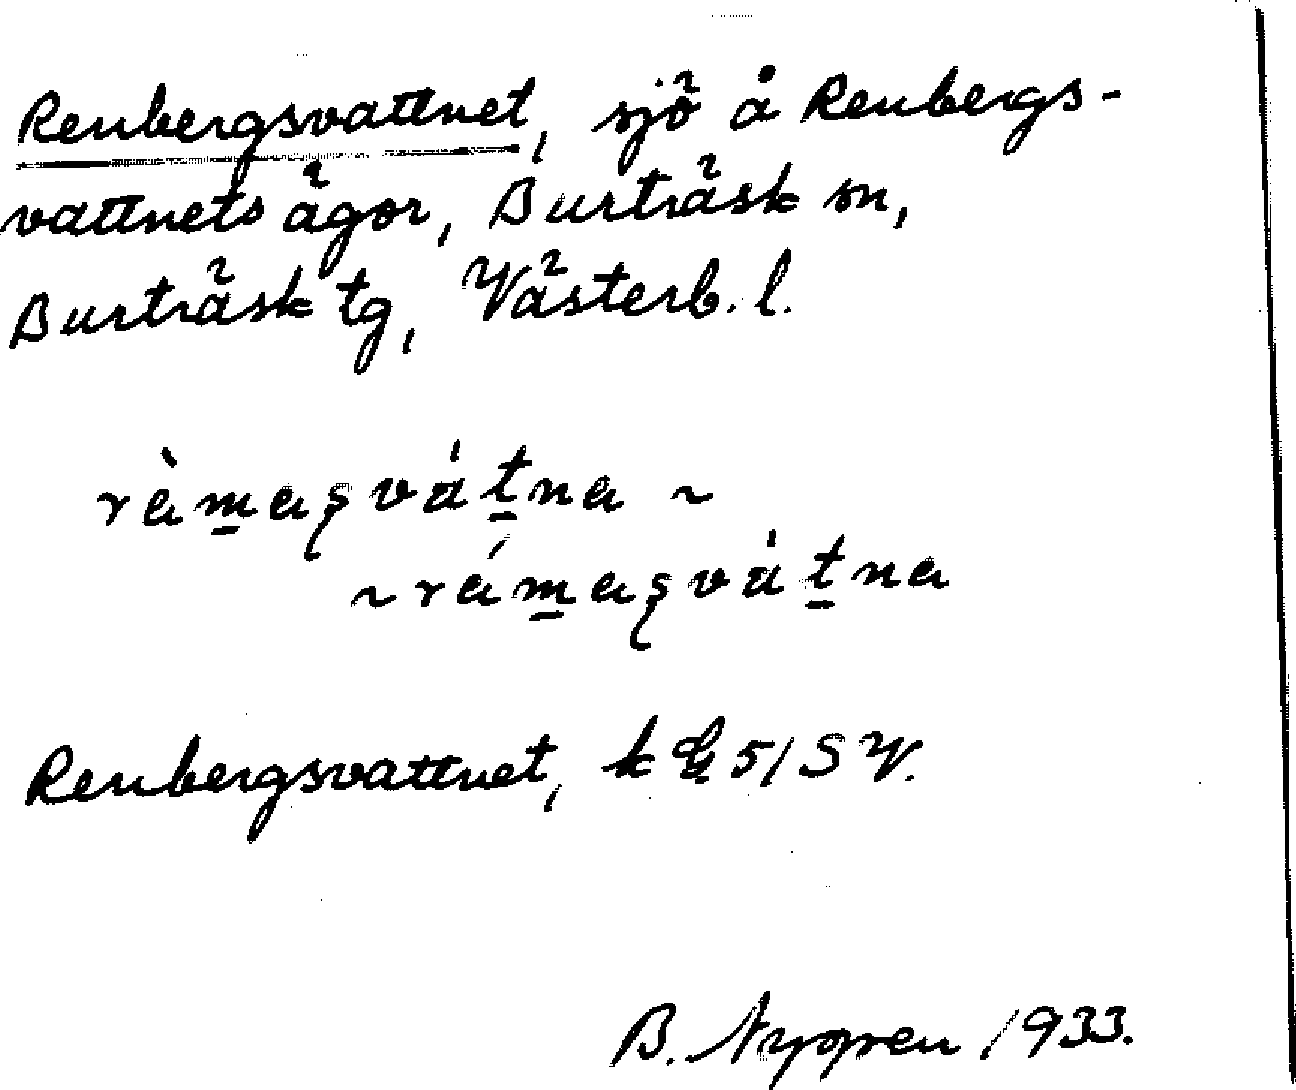 Renbergsvattnet, sjö å Renbergs-
vattnets ägor, Burträsk sn,
Burträsk tg, Västerb. l.
ràmasvátna ~
~ rámasvátna
Renbergsvattnet, k 51 SV.
B. Nygren 1933.